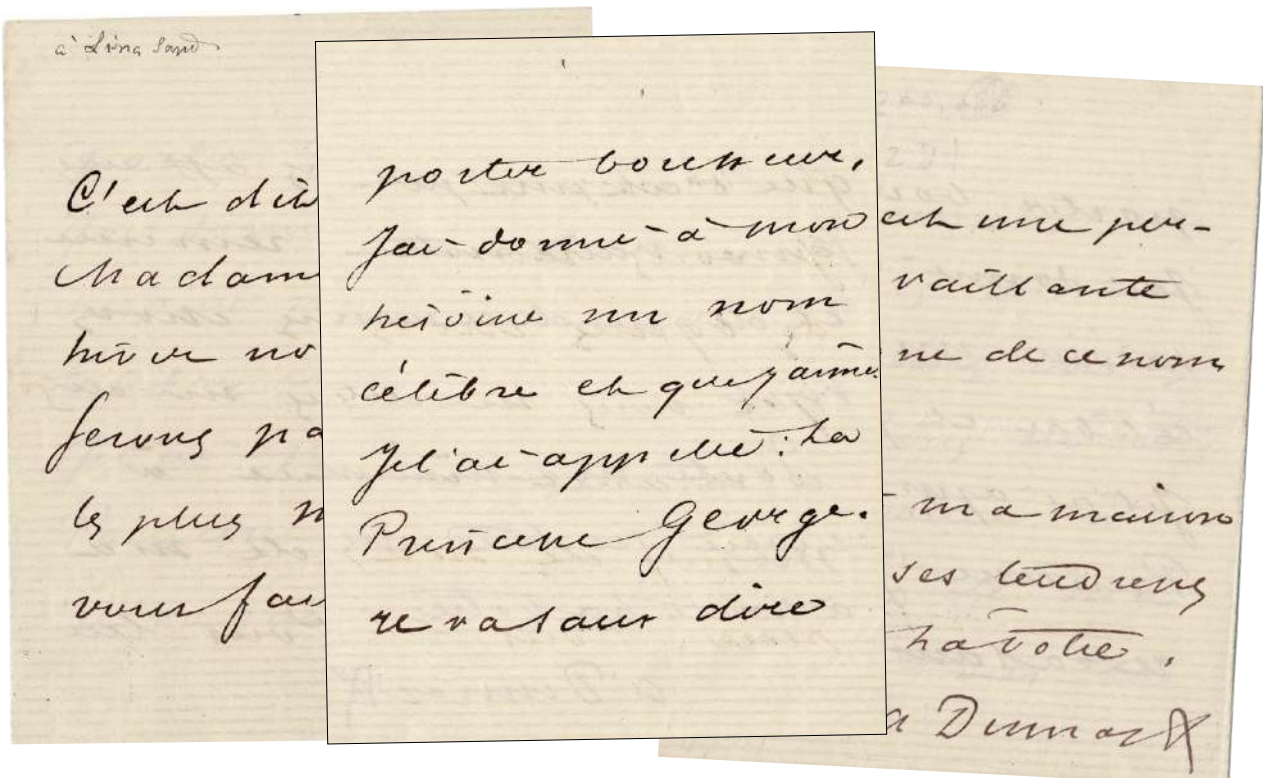 à Lina Sand
C'est dit
Madam
hiver no
ferons pa
les plus
vous fai
porter bonheur.
J'ai donné à mon
héroïne un nom
célèbre et que j'aime
Je l'ai appellé: La
Princesse George.
va sans dire
est une per-
vaillante
ne de ce nom
ma maison
ses tendresses
La vôtre.
a Dumas f